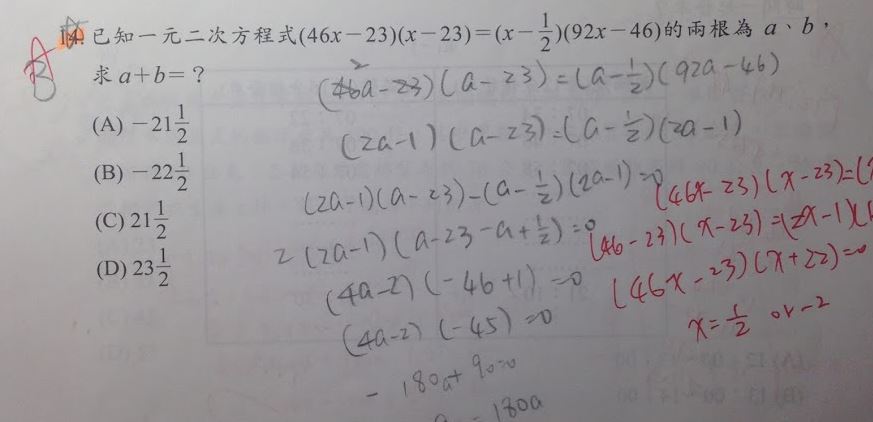 14. 已知一元二次方程式(46x－23)(x－23)＝(x－1/2)(92x－46)的兩根為 a、b，
求 a＋b＝？
(A) －21 1/2
(B) －22 1/2
(C) 21 1/2
(D) 23 1/2
(46a-23)(a-23)=(a-1/2)(92a-46)
2
(2a-1)(a-23)=(a-1/2)(2a-1)
(2a-1)(a-23)-(a-1/2)(2a-1)=0
2(2a-1)(a-23-a+1/2)=0
(4a-2)(-46+1)=0
(4a-2)(-45)=0
-180a+90=0
180a
A
B
(46x-23)(x-23)=(
(46-23)(x-23)=(2x-1)(
(46x-23)(x+22)=0
x=1/2 or -2